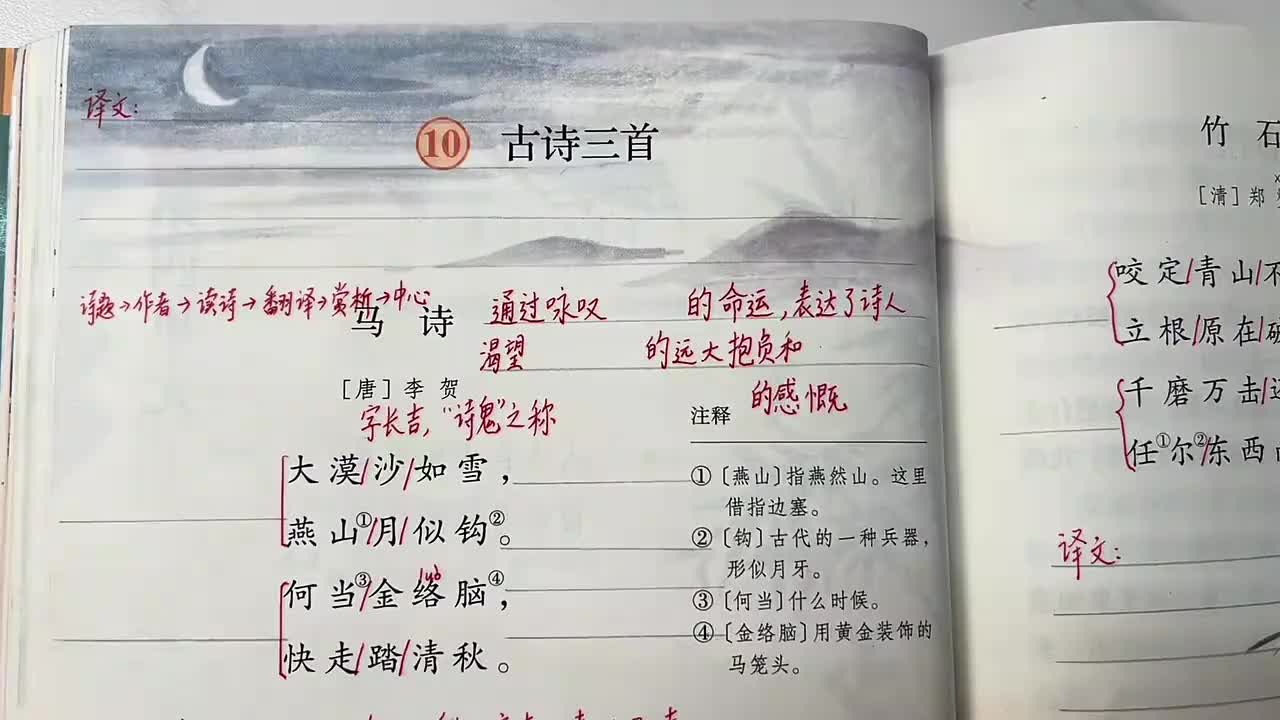 译文：
10 古诗三首
诗题→作者→读诗→翻译→赏析→中心
马诗
通过咏叹 的命运，表达了诗人
渴望 的远大抱负和
的感慨
［唐］李贺
字长吉，“诗鬼”之称
大漠/沙/如雪，
燕山①/月/似钩②。
何当③/金络脑④，
luò
快走/踏/清秋。
注释
①〔燕山〕指燕然山。这里
借指边塞。
②〔钩〕古代的一种兵器，
形似月牙。
③〔何当〕什么时候。
④〔金络脑〕用黄金装饰的
马笼头。
竹石
［清］郑
咬定/青山/不
立根/原在/破
千磨万击/还
任①尔②/东西
译文：